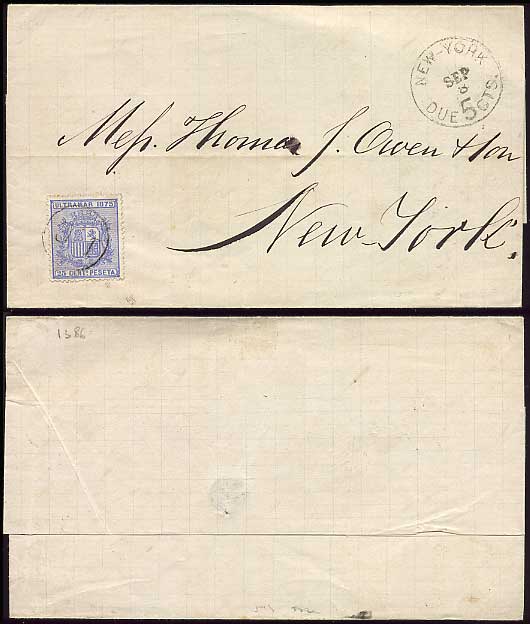 NEW-YORK
SEP
8
DUE 5 CTS.
Mess. Thomas J. Owen & Son
New-York.
ULTRAMAR 1875
25 CENT. PESETA
1386